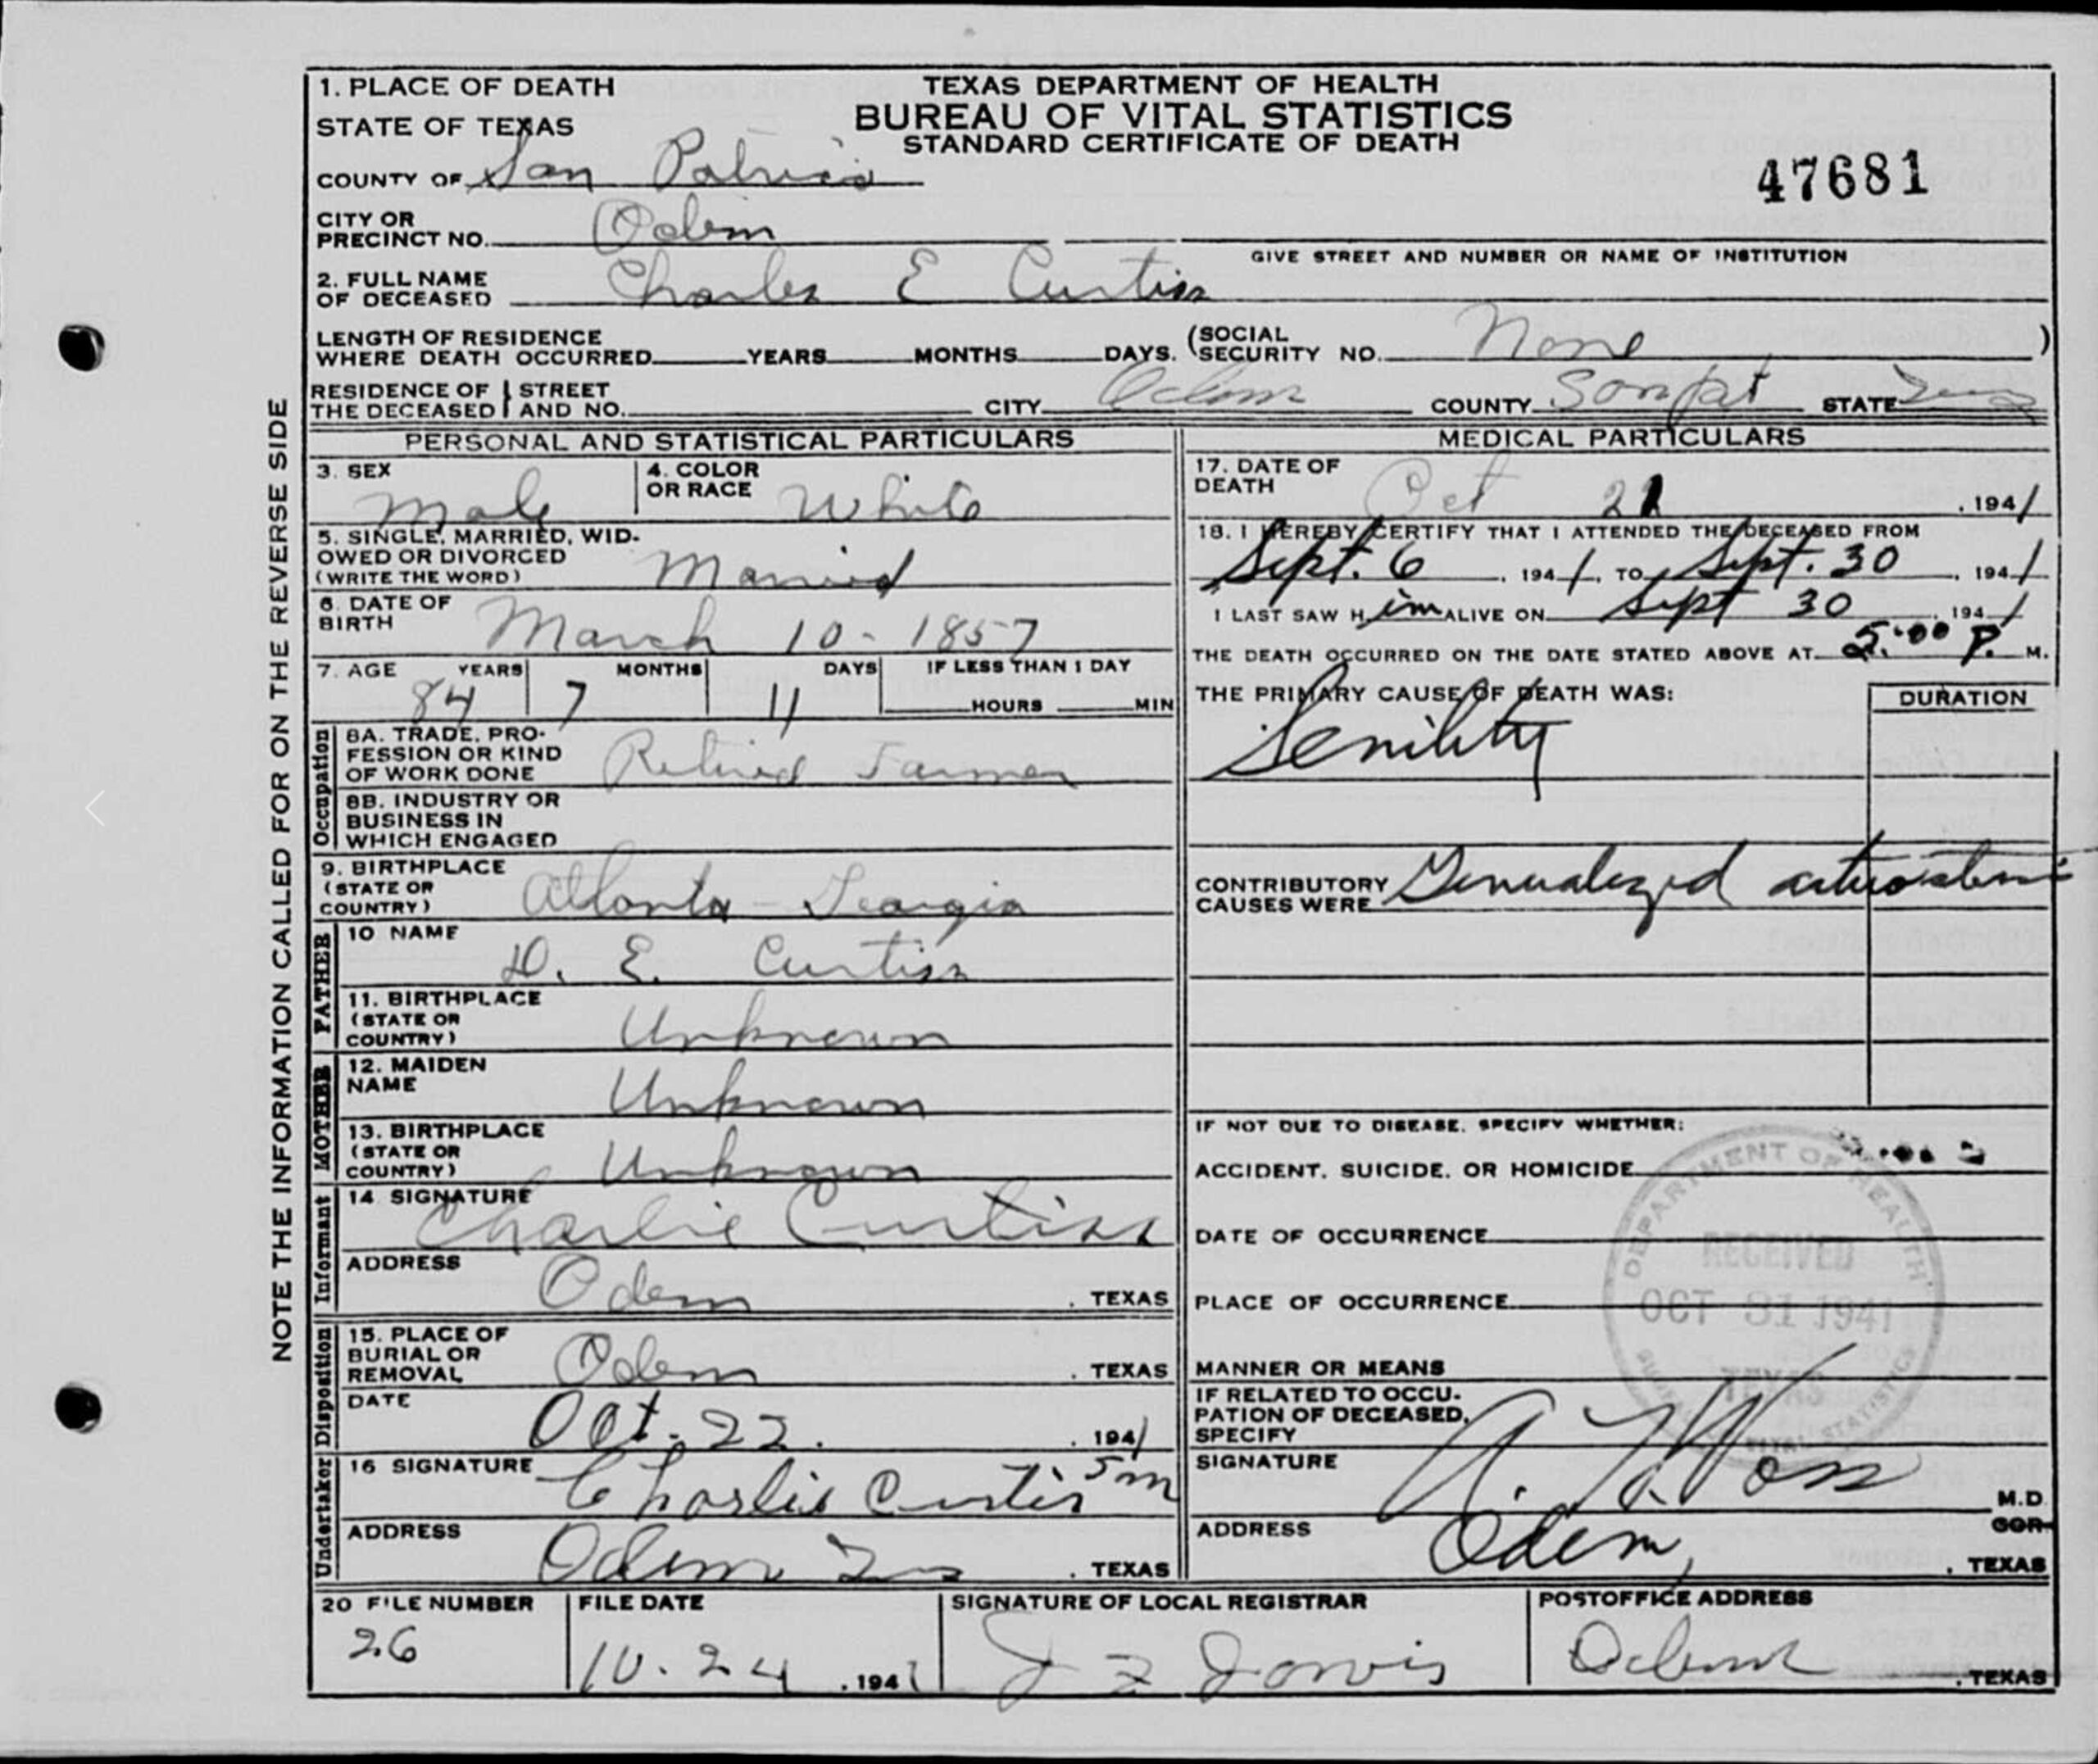 1. PLACE OF DEATH
STATE OF TEXAS
COUNTY OF San Patricio
CITY OR PRECINCT NO. Odem
TEXAS DEPARTMENT OF HEALTH
BUREAU OF VITAL STATISTICS
STANDARD CERTIFICATE OF DEATH
47681
GIVE STREET AND NUMBER OR NAME OF INSTITUTION
2. FULL NAME OF DECEASED Charles E Curtiss
LENGTH OF RESIDENCE WHERE DEATH OCCURRED YEARS MONTHS DAYS. (SOCIAL SECURITY NO. None)
RESIDENCE OF THE DECEASED STREET AND NO. CITY Odem COUNTY San Pat STATE Texas
NOTE THE INFORMATION CALLED FOR ON THE REVERSE SIDE
PERSONAL AND STATISTICAL PARTICULARS
3. SEX Male
4. COLOR OR RACE White
5. SINGLE, MARRIED, WIDOWED OR DIVORCED (WRITE THE WORD) Married
6. DATE OF BIRTH March 10 - 1857
7. AGE YEARS 84 MONTHS 7 DAYS 11 IF LESS THAN 1 DAY HOURS MIN
Occupation
8A. TRADE, PROFESSION OR KIND OF WORK DONE Retired Farmer
8B. INDUSTRY OR BUSINESS IN WHICH ENGAGED
9. BIRTHPLACE (STATE OR COUNTRY) Atlanta - Georgia
FATHER
10 NAME D. E. Curtiss
11. BIRTHPLACE (STATE OR COUNTRY) Unknown
MOTHER
12. MAIDEN NAME Unknown
13. BIRTHPLACE (STATE OR COUNTRY) Unknown
Informant
14. SIGNATURE Charlie Curtiss
ADDRESS Odem, TEXAS
Disposition
15. PLACE OF BURIAL OR REMOVAL Odem, TEXAS
DATE Oct. 22. 1941
Undertaker
16 SIGNATURE Charlie Curtis
ADDRESS Odem Tex, TEXAS
MEDICAL PARTICULARS
17. DATE OF DEATH Oct 21, 1941
18. I HEREBY CERTIFY THAT I ATTENDED THE DECEASED FROM
Sept. 6, 1941, TO Sept. 30, 1941
I LAST SAW H im ALIVE ON Sept 30, 1941
THE DEATH OCCURRED ON THE DATE STATED ABOVE AT 5:00 P. M.
THE PRIMARY CAUSE OF DEATH WAS: DURATION
Senility
CONTRIBUTORY CAUSES WERE Generalized
IF NOT DUE TO DISEASE, SPECIFY WHETHER:
ACCIDENT, SUICIDE, OR HOMICIDE
DATE OF OCCURRENCE
PLACE OF OCCURRENCE
MANNER OR MEANS
DEPARTMENT OF HEALTH
RECEIVED
OCT 31 1941
TEXAS
VITAL STATISTICS
IF RELATED TO OCCUPATION OF DECEASED, SPECIFY
SIGNATURE M.D.
COR
ADDRESS Odem, TEXAS
20 FILE NUMBER 26
FILE DATE 10. 24, 1941
SIGNATURE OF LOCAL REGISTRAR
POSTOFFICE ADDRESS Odem, TEXAS